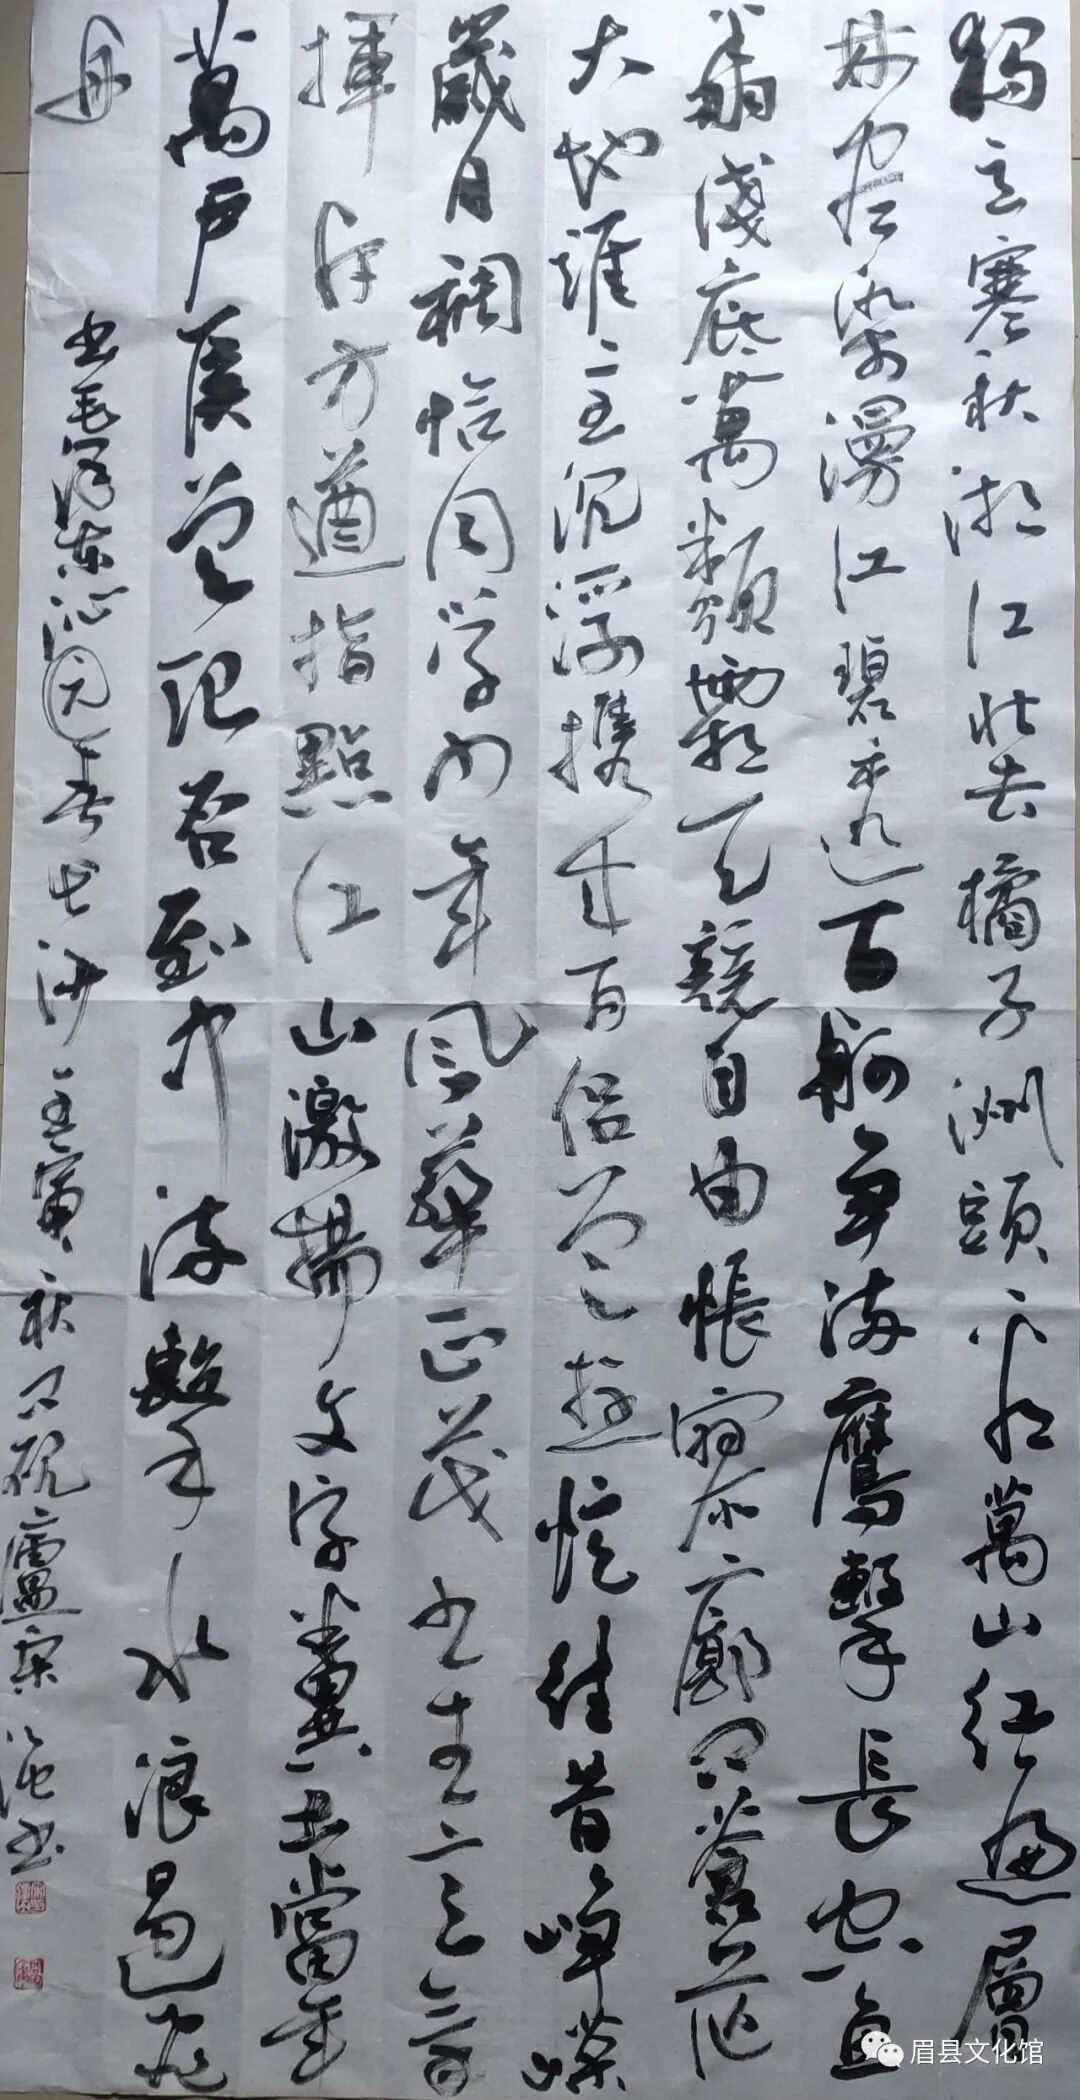 獨立寒秋湘江北去橘子洲頭看萬山紅遍層
林盡染漫江碧透百舸爭流鷹擊長空魚
翔淺底萬類霜天競自由悵寥廓問蒼茫
大地誰主沉浮攜來百侶曾遊憶往昔崢嶸
歲月稠恰同學少年風華正茂書生意氣
揮斥方遒指點江山激揚文字糞土當年
萬戶侯曾記否到中流擊水浪遏飛
舟
書毛澤東沁园春长沙壬寅秋日硯廬書
眉县文化馆